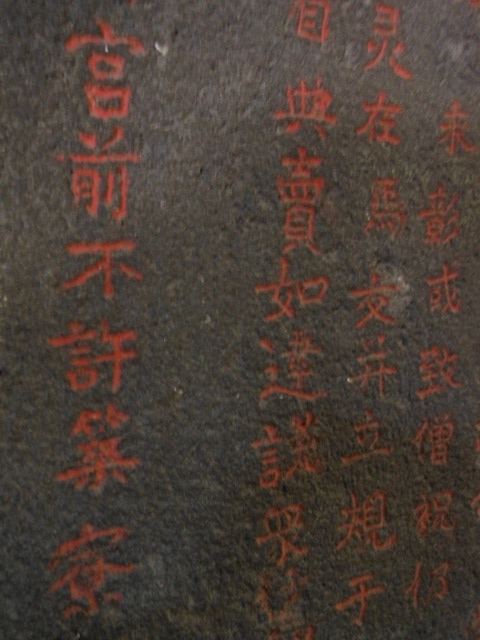 未彰或致僧祝仍
灵在焉爰并立規于
典賣如違議衆
宮前不許築寮